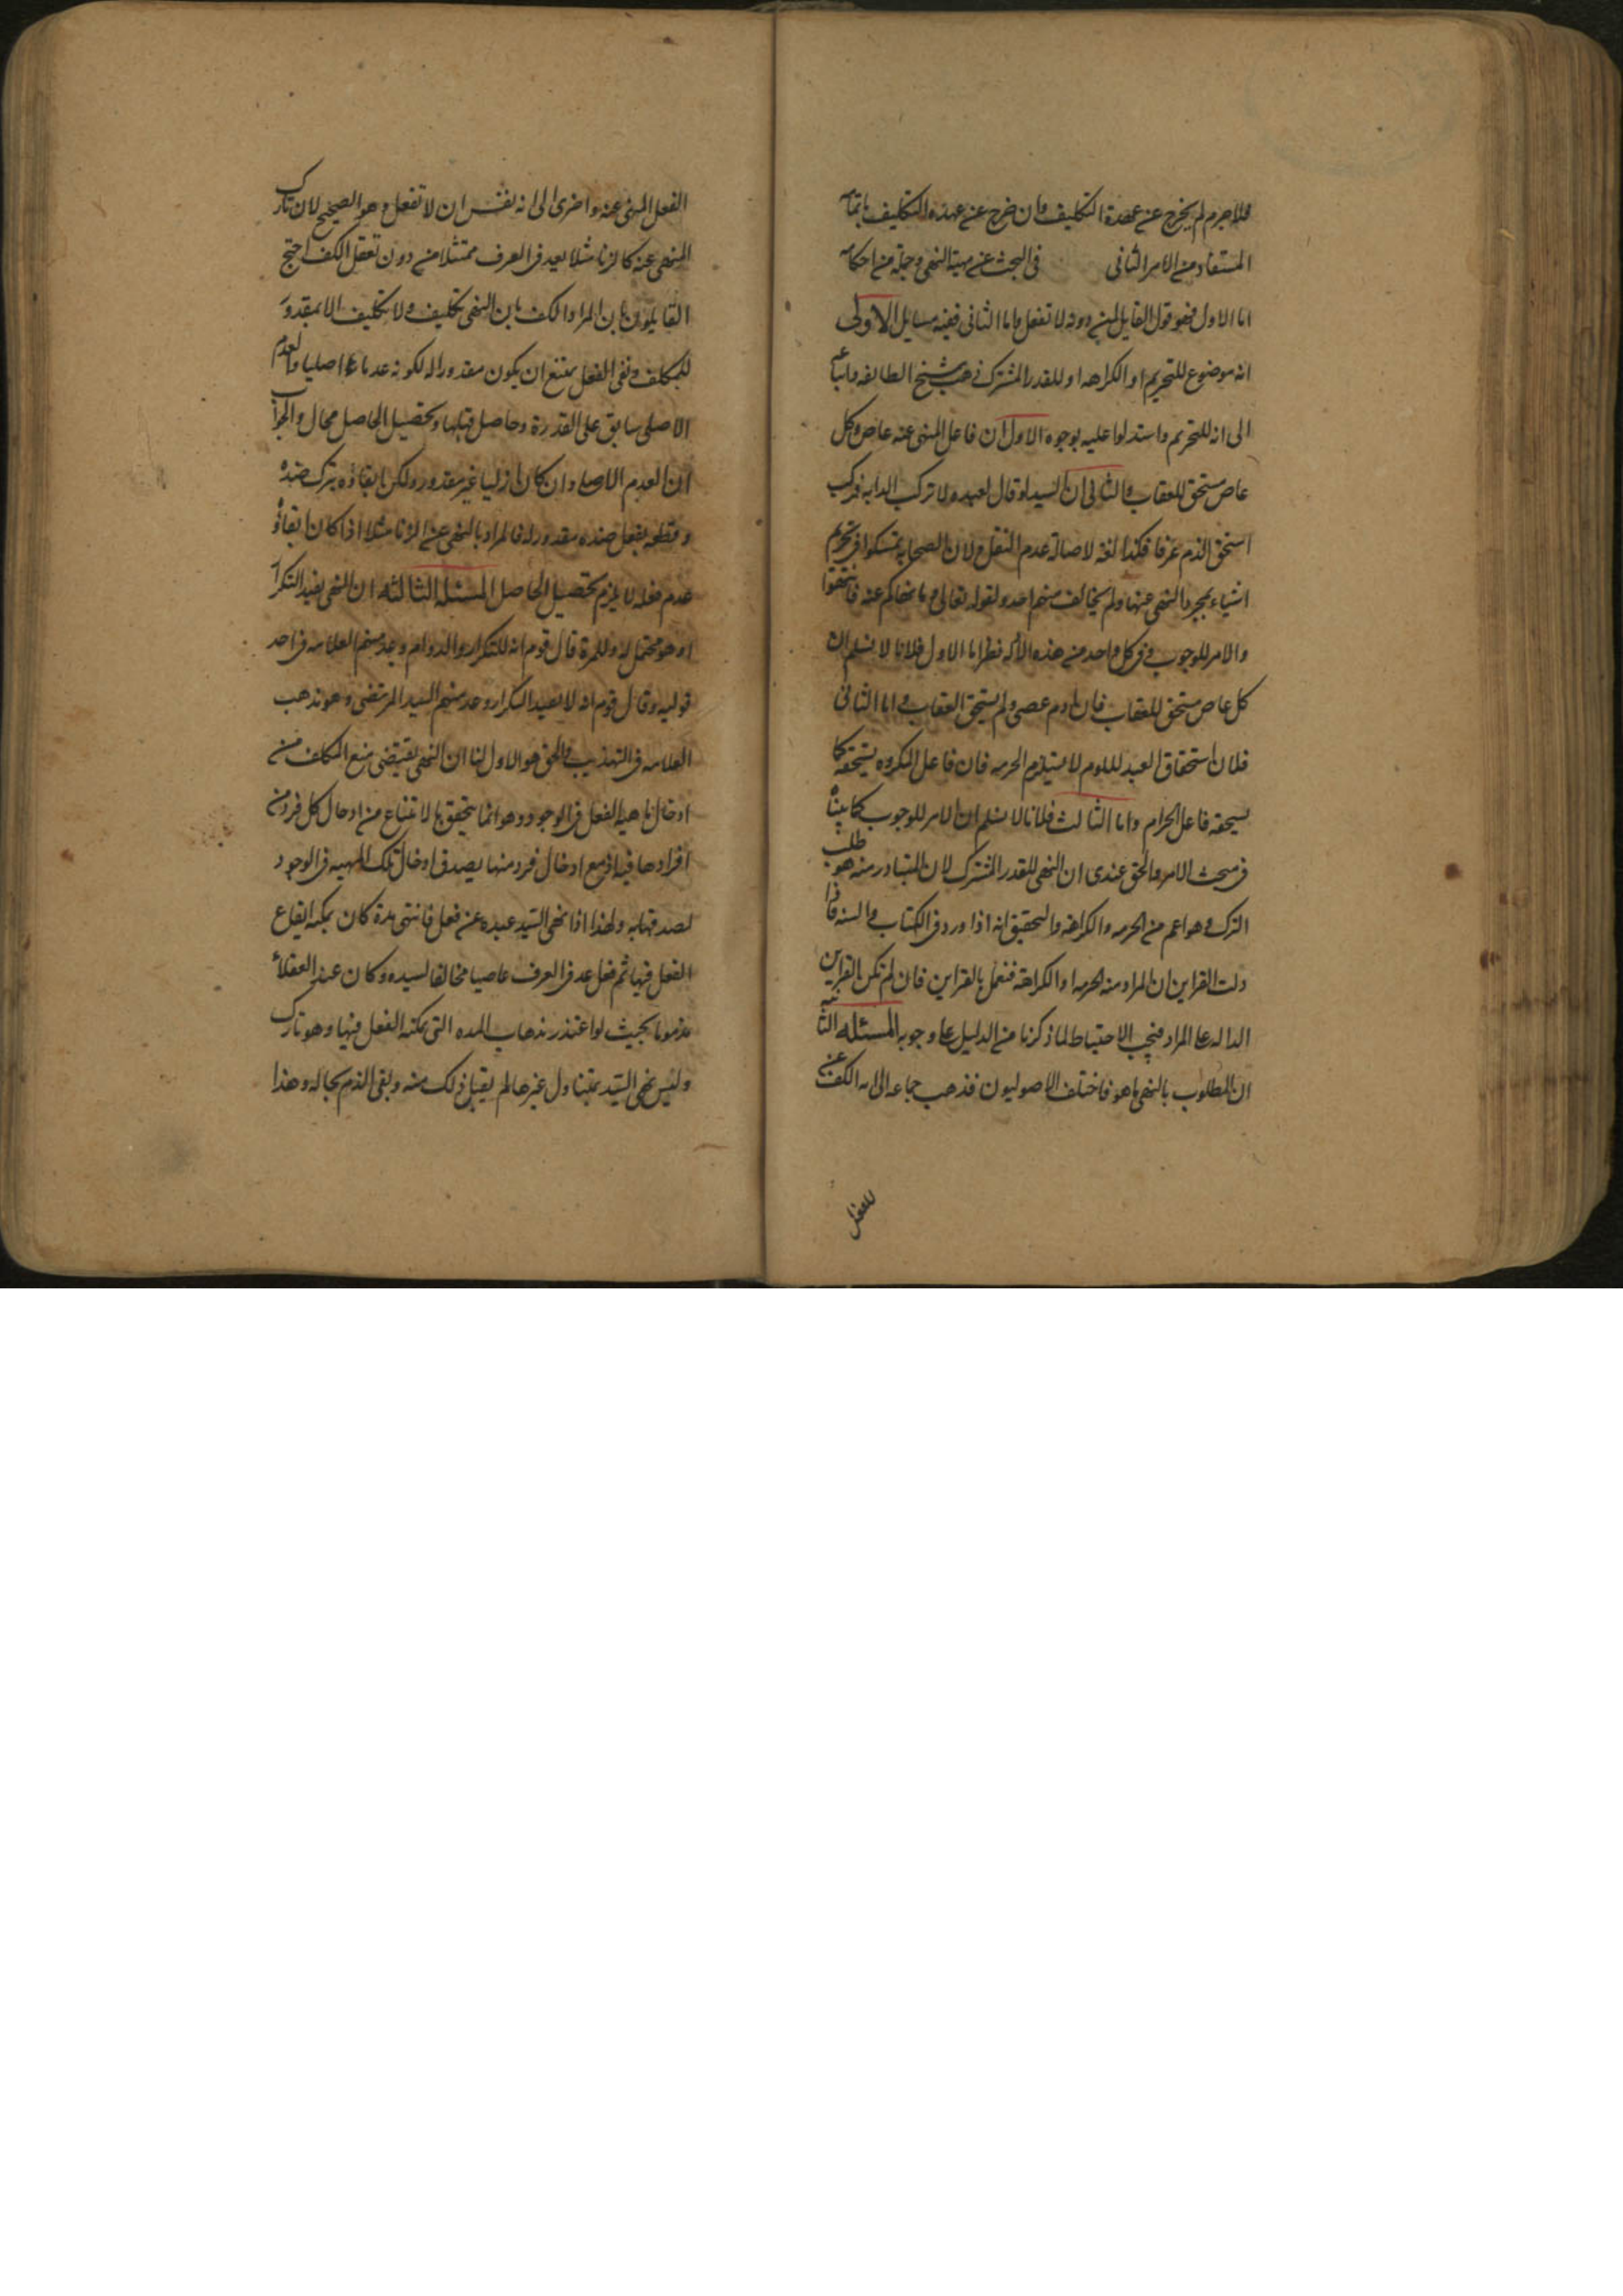 فلاجرم لم يخرج عن عهدة التكليف وان خرج عن عهده التكليف باتمامه
المستفاد من الامر الثاني في البحث عن مهية النهي وجملة من احكامه
اما الاول فهو قول القايل لمن دونه لا تفعل واما الثاني ففيه مسايل الاولى
انه موضوع للتحريم او الكراهه او للقدر المشترك ذهب شيخ الطائفه واتباعه
الى انه للتحريم واستدلوا عليه بوجوه الاول ان فاعل المنهى عنه عاص وكل
عاص مستحق للعقاب والثاني ان السيد لو قال لعبده لا تركب الدابه فركب
استحق الذم عرفا فكذا لغة لاصالة عدم النقل ولان الصحابه تمسكوا في تحريم
اشياء بمجرد النهى عنها ولم يخالف منهم احد ولقوله تعالى وما نهاكم عنه فانتهوا
والامر للوجوب وفي كل واحد من هذه الادله نظر اما الاول فلانا لا نسلم ان
كل عاص مستحق للعقاب فان ادم عصى ولم يستحق العقاب واما الثاني
فلان استحقاق العبد للوم لا يستلزم الحرمه فان فاعل المكروه يستحقه كما
يستحقه فاعل الحرام واما الثالث فلانا لا نسلم ان الامر للوجوب كما بيناه
في مبحث الامر والحق عندى ان النهى للقدر المشترك لان المتبادر منه هو طلب
الترك وهو اعم من الحرمه والكراهة والتحقيق انه اذا ورد في الكتاب والسنه فان
دلت القراين ان المراد منه الحرمه او الكراهة فنعمل بالقراين فان لم تكن القراين
الداله على المراد فيجب الاحتياط لما ذكرنا من الدليل على وجوبه المسئله الثانيه
ان المطلوب بالنهى ما هو فاختلف الاصوليون فذهب جماعه الى انه الكف عن
الفعل المنهى عنه واخرى الى انه نفس ان لا تفعل وهو الصحيح لان تارك
المنهى عنه كالزنا مثلا يعد في العرف ممتثلا من دون تعقل الكف احتج
القايلون بان المراد الكف بان النهى تكليف ولا تكليف الا بمقدور
للمكلف ونفى الفعل يمتنع ان يكون مقدورا له لكونه عدما اصليا والعدم
الاصلي سابق على القدرة وحاصل قبلها وتحصيل الحاصل محال والجواب
ان العدم الاصلي وان كان ازليا غير مقدور ولكن ابقاؤه بترك ضده
وقطعه بفعل ضده مقدور له فالمراد بالنهى عن الزنا مثلا اذا كان ابقاؤ
عدم فعله لا يلزم تحصيل الحاصل المسئله الثالثه ان النهى يفيد التكرار
او هو محتمل له وللمرة قال قوم انه للتكرار والدوام وعد منهم العلامه في احد
قوليه وقال قوم انه لا يفيد التكرار وعد منهم السيد المرتضى وهو مذهب
العلامه في التهذيب والحق هو الاول لنا ان النهى يقتضى منع المكلف من
ادخال ماهية الفعل في الوجود وهو انما يتحقق بالامتناع من ادخال كل فرد من
افرادها فيه اذ مع ادخال فرد منها يصدق ادخال تلك المهيه في الوجود
لصدقها به ولهذا اذا نهى السيد عبده عن فعل فانتهى مدة كان يمكنه ايقاع
الفعل فيها ثم فعل عد في العرف عاصيا مخالفا لسيده وكان عند العقلاء
مذموما بحيث لو اعتذر بذهاب المده التى يمكنه الفعل فيها وهو تارك
وليس نهى السيد بمتناول غيرها لم يقبل ذلك منه وبقى الذم بحاله وهذا